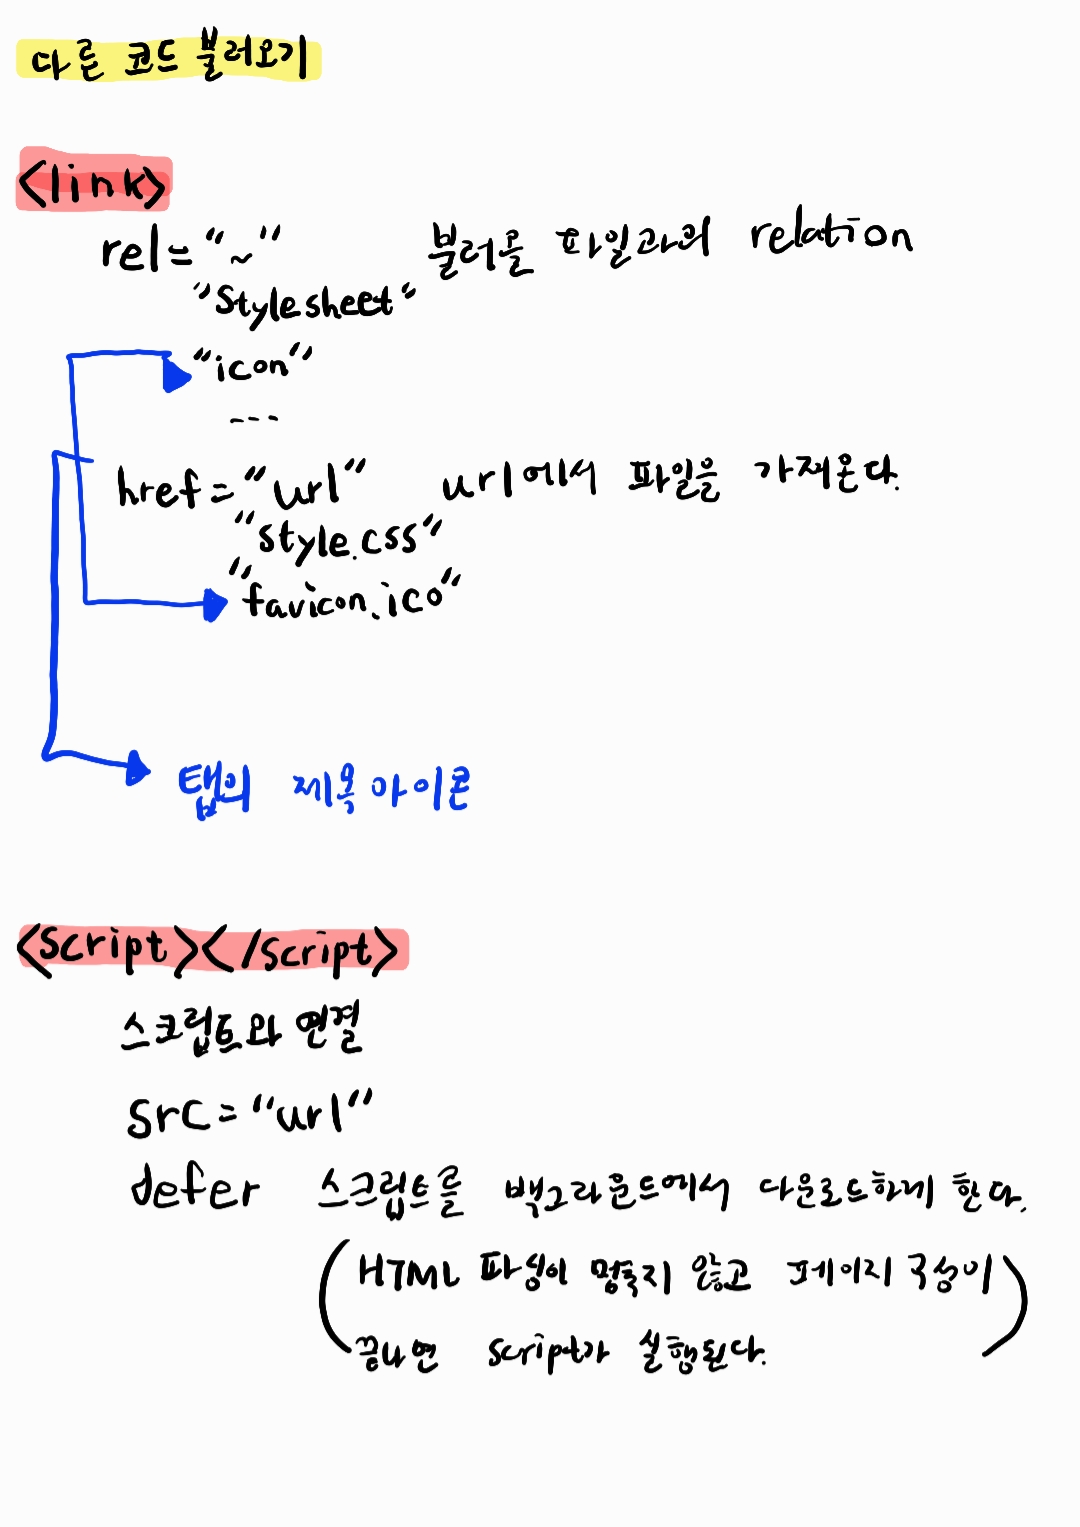 다른 코드 불러오기
<link>
rel="~" 불러올 파일과의 relation
"Stylesheet"
"icon"
---
href="url" url에서 파일을 가져온다.
"style.css"
"favicon.ico"
탭의 제목 아이콘
<script></script>
스크립트와 연결
src="url"
defer 스크립트를 백그라운드에서 다운로드하게 한다.
(HTML 파싱이 멈추지 않고 페이지 구성이
끝나면 script가 실행된다.)